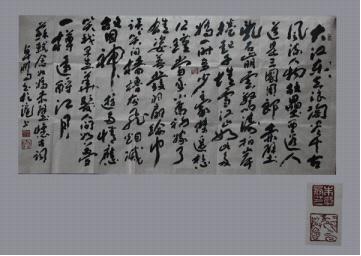 大江东去浪淘尽千古
风流人物故垒西边人
道是三国周郎赤壁
乱石崩雲
卷起千堆雪江山如画
一时多少豪杰遥想
公瑾当年小乔初嫁了
雄姿英发羽扇纶巾
谈笑间樯橹灰飞烟灭
故国神游多情应
笑我早生华发人间如梦
一樽还酹江月
苏轼念奴娇赤壁怀古词